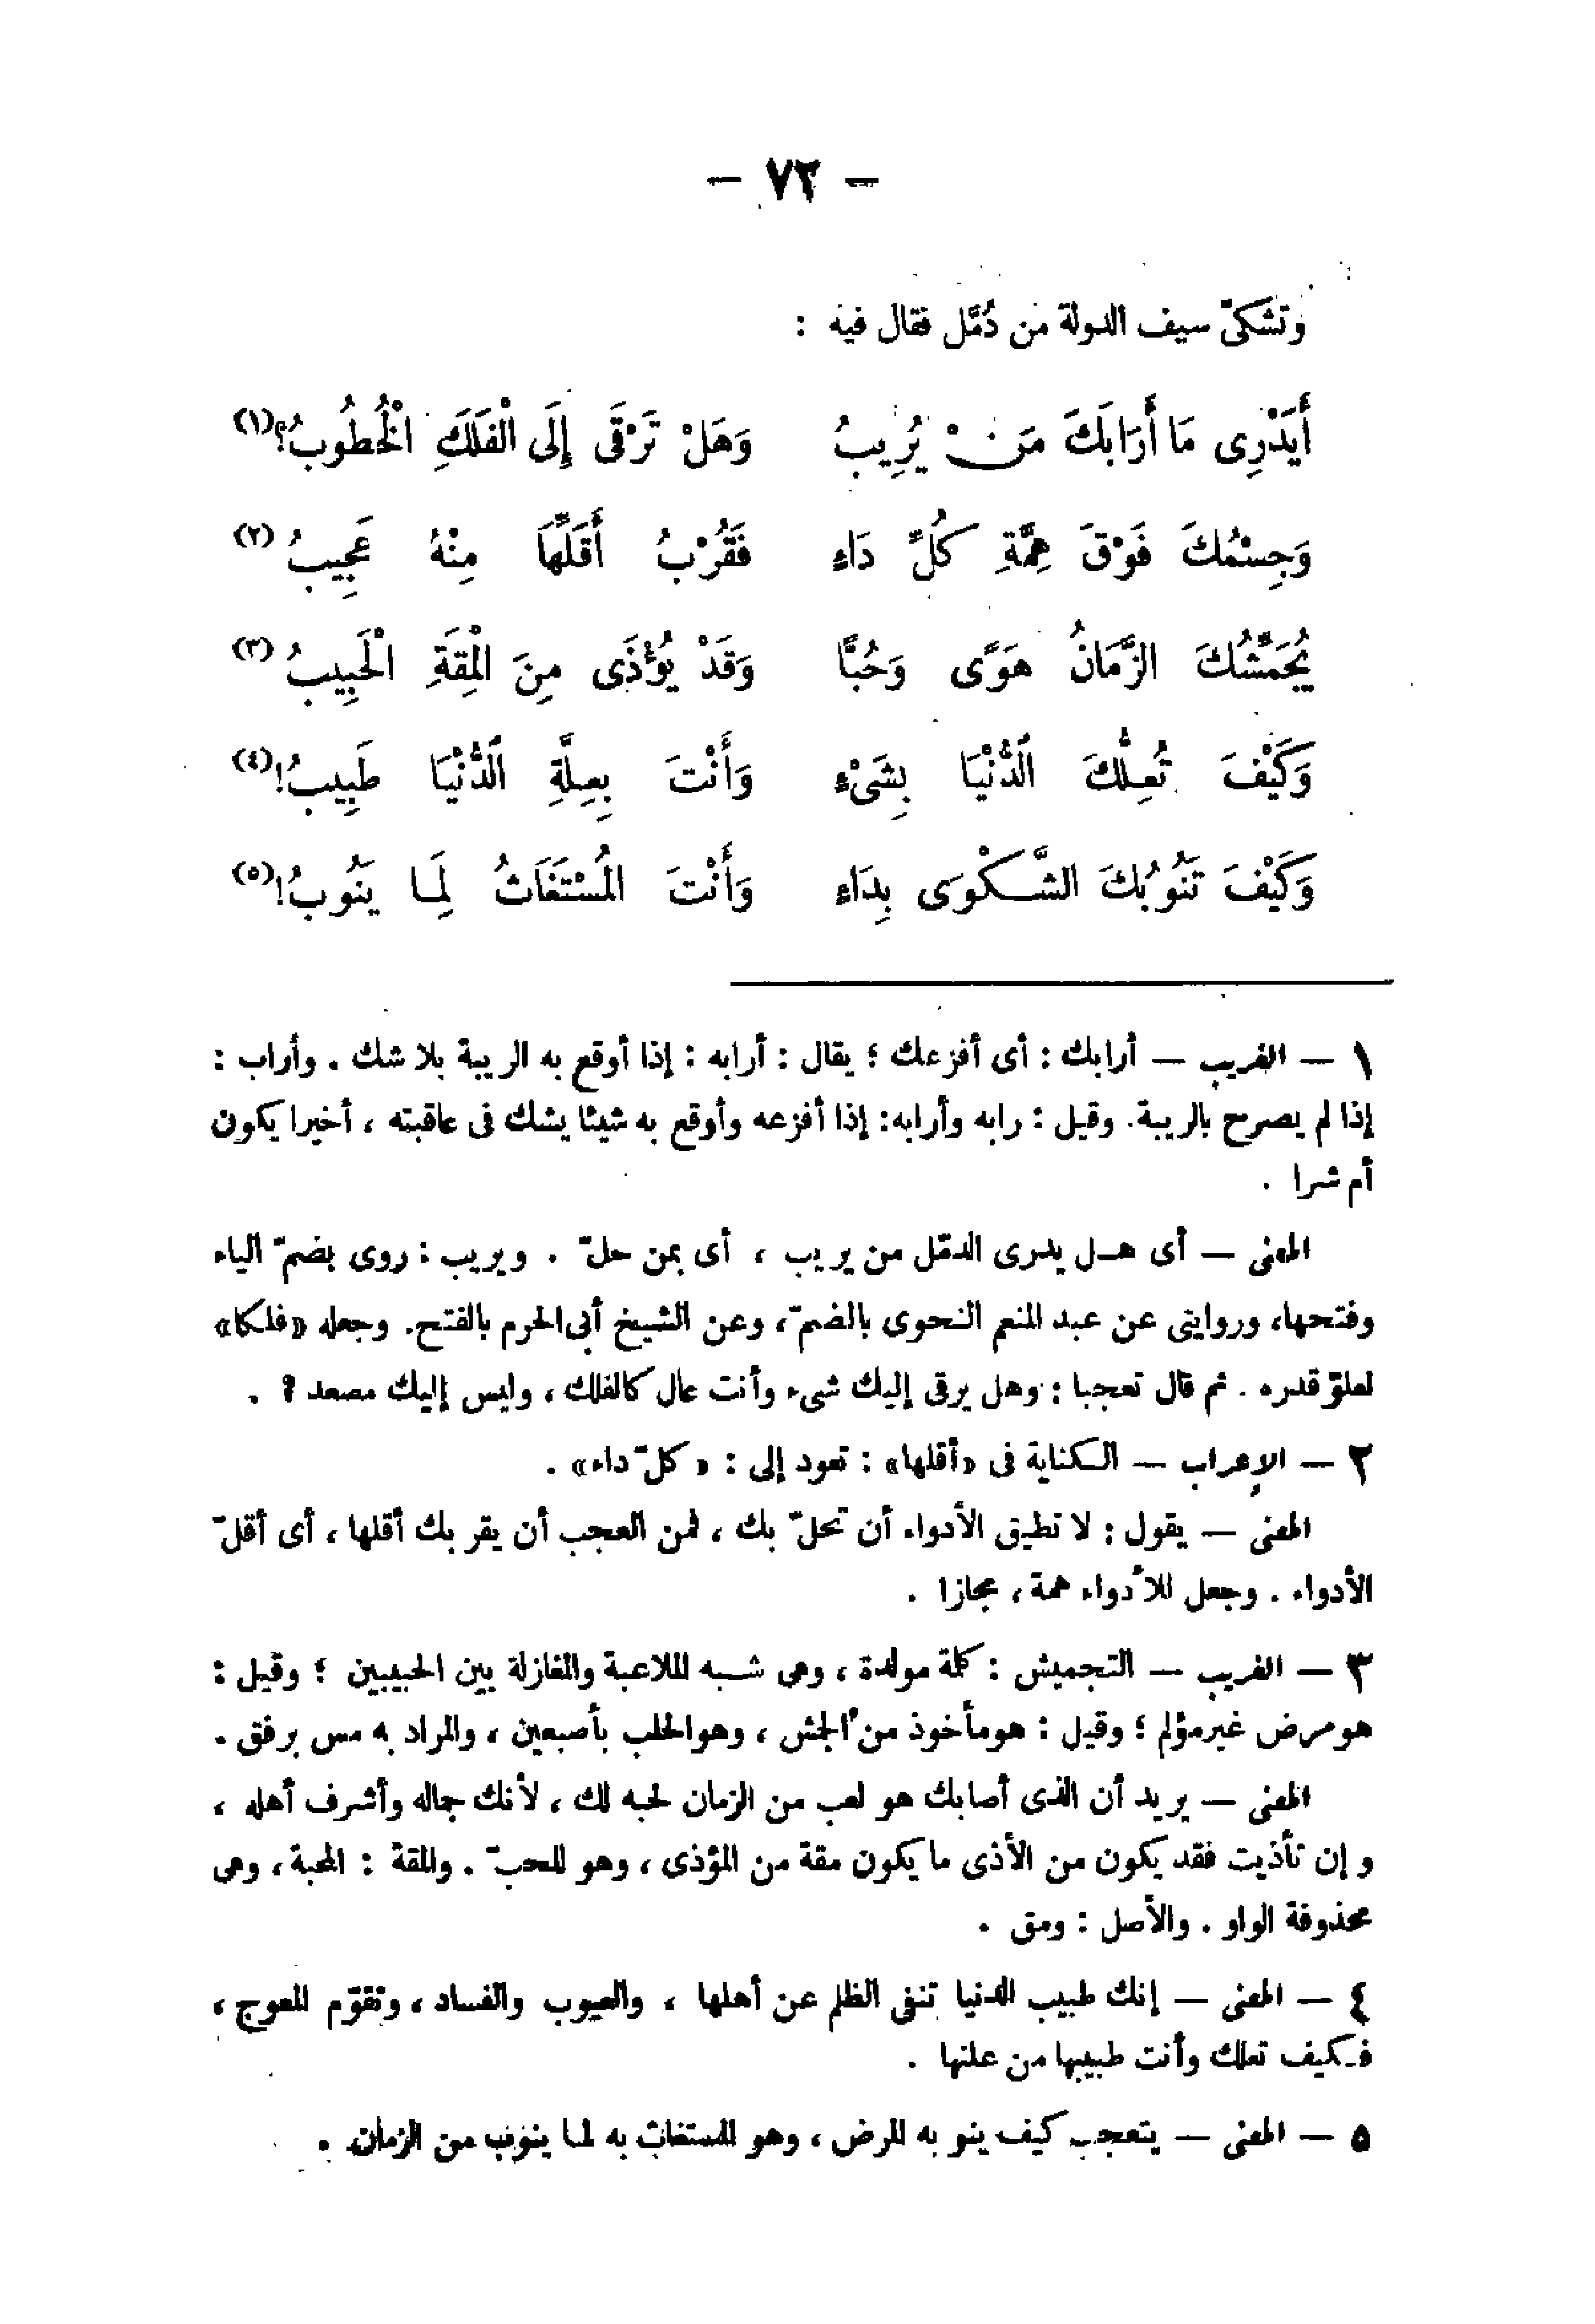 — ٧٢ —
وتشكىّ سيف الدولة من دُمَّل فقال فيه :
أَيَدْرِى مَا أَرَابَكَ مَنْ يُرِيبُ وَهَلْ تَرْقَى إِلَى الْفَلَكِ الْخُطُوبُ؟(١)
وَجِسْمُكَ فَوْقَ هِمَّةِ كُلِّ دَاءٍ فَقُرْبُ أَقَلِّهَا مِنْهُ عَجِيبُ (٢)
يُجَمِّشُكَ الزَّمَانُ هَوًى وَحُبًّا وَقَدْ يُؤْذَى مِنَ الْمِقَةِ الْحَبِيبُ (٣)
وَكَيْفَ تُعِلُّكَ الدُّنْيَا بِشَىْءٍ وَأَنْتَ بِعِلَّةِ الدُّنْيَا طَبِيبُ!(٤)
وَكَيْفَ تَنُوبُكَ الشَّكْوَى بِدَاءٍ وَأَنْتَ الْمُسْتَغَاثُ لِمَا يَنُوبُ!(٥)
١ — الغريب — أرابك : أى أفزعك ؛ يقال : أرابه : إذا أوقع به الريبة بلا شك . وأراب :
إذا لم يصرح بالريبة. وقيل : رابه وأرابه: إذا أفزعه وأوقع به شيئا يشك فى عاقبته ، أخيرا يكون
أم شرا .
المعنى — أى هل يدرى الدمّل من يريب ، أى بمن حلّ . ويريب : روى بضمّ الياء
وفتحها، وروايتى عن عبد المنعم النحوى بالضمّ، وعن الشيخ أبى الحرم بالفتح. وجعله «فلكا»
لعلوّ قدره . ثم قال تعجبا : وهل يرقى إليك شىء وأنت عال كالفلك ، وليس إليك مصعد ؟ .
٢ — الإعراب — الكناية فى «أقلها» : تعود إلى : « كلّ داء» .
المعنى — يقول : لا تطيق الأدواء أن تحلّ بك ، فمن العجب أن يقربك أقلها ، أى أقلّ
الأدواء . وجعل للأدواء همة ، مجازا .
٣ — الغريب — التجميش : كلمة مولدة ، وهى شبه الملاعبة والمغازلة بين الحبيبين ؛ وقيل :
هو مرض غير مؤلم ؛ وقيل : هو مأخوذ من الجمش ، وهو الحلب بأصبعين ، والمراد به مس برفق .
المعنى — يريد أن الذى أصابك هو لعب من الزمان لحبه لك ، لأنك جماله وأشرف أهله ،
وإن تأذيت فقد يكون من الأذى ما يكون مقة من المؤذى ، وهو المحبّ . والمقة : المحبة ، وهى
محذوفة الواو . والأصل : ومق .
٤ — المعنى — إنك طبيب الدنيا تنفى الظلم عن أهلها ، والعيوب والفساد ، وتقوّم المعوج ،
فكيف تعلك وأنت طبيبها من علتها .
٥ — المعنى — يتعجب كيف ينوبه المرض ، وهو المستغاث به لما ينوب من الزمان .